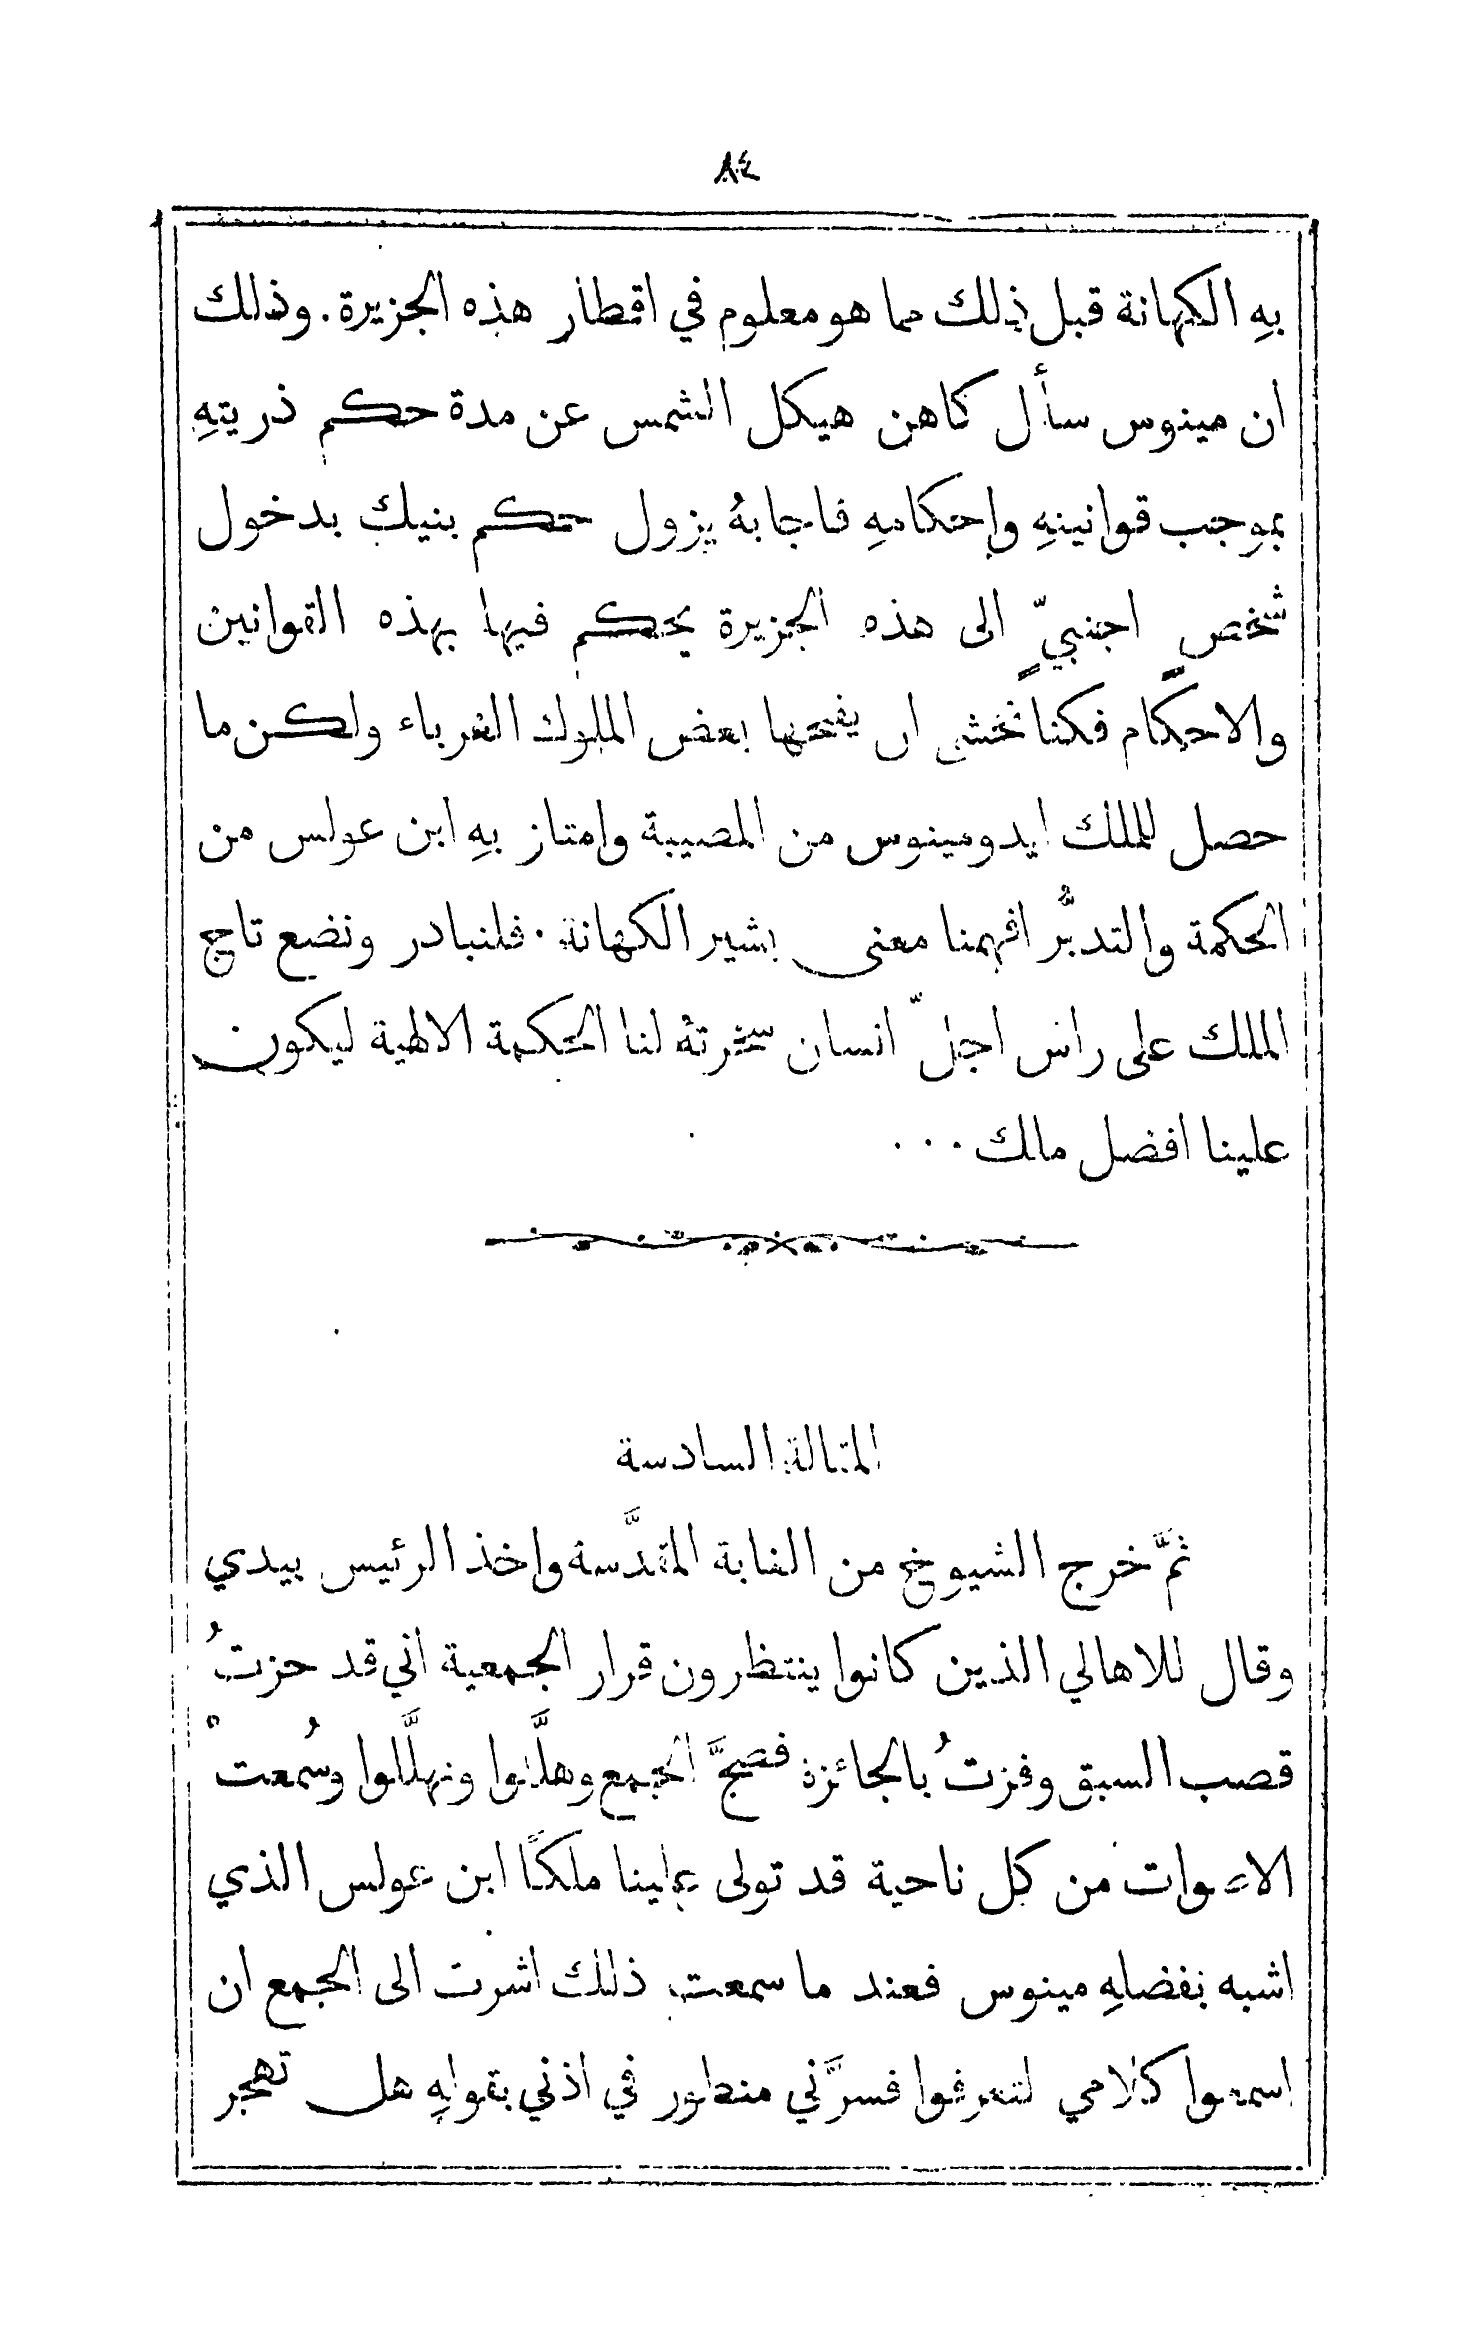 ٨٤
بهِ الكهانة قبل ذلك مما هو معلوم في اقطار هذه الجزيرة. وذلك
ان مينوس سأل كاهن هيكل الشمس عن مدة حكم ذريتهِ
بموجب قوانينهِ واحكامهِ فاجابهُ يزول حكم بنيك بدخول
شخصٍ اجنبيٍّ الى هذه الجزيرة يحكم فيها بهذه القوانين
والاحكام فكنا نخشى ان يفتحها بعض الملوك الغرباء ولكن ما
حصل للملك ايدومينوس من المصيبة وامتاز بهِ ابن عولس من
الحكمة والتدبُّر افهمنا معنى بشير الكهانة. فلنبادر ونضع تاج
الملك على راس اجلّ انسان سخرتهُ لنا الحكمة الالهية ليكون
علينا افضل مالك...
المقالة السادسة
ثمَّ خرج الشيوخ من الغابة المقدَّسة واخذ الرئيس بيدي
وقال للاهالي الذين كانوا ينتظرون قرار الجمعية اني قد حزتُ
قصب السبق وفزتُ بالجائزة فضجَّ الجمع وهلَّلوا وتهلَّلوا وسُمعتْ
الاصوات من كل ناحية قد تولى علينا ملكًا ابن عولس الذي
اشبه بفضلهِ مينوس فعند ما سمعت ذلك اشرت الى الجمع ان
اسمعوا كلامي لتعرفوا فسرَّني منطور في اذني بقولهِ هل تهجر